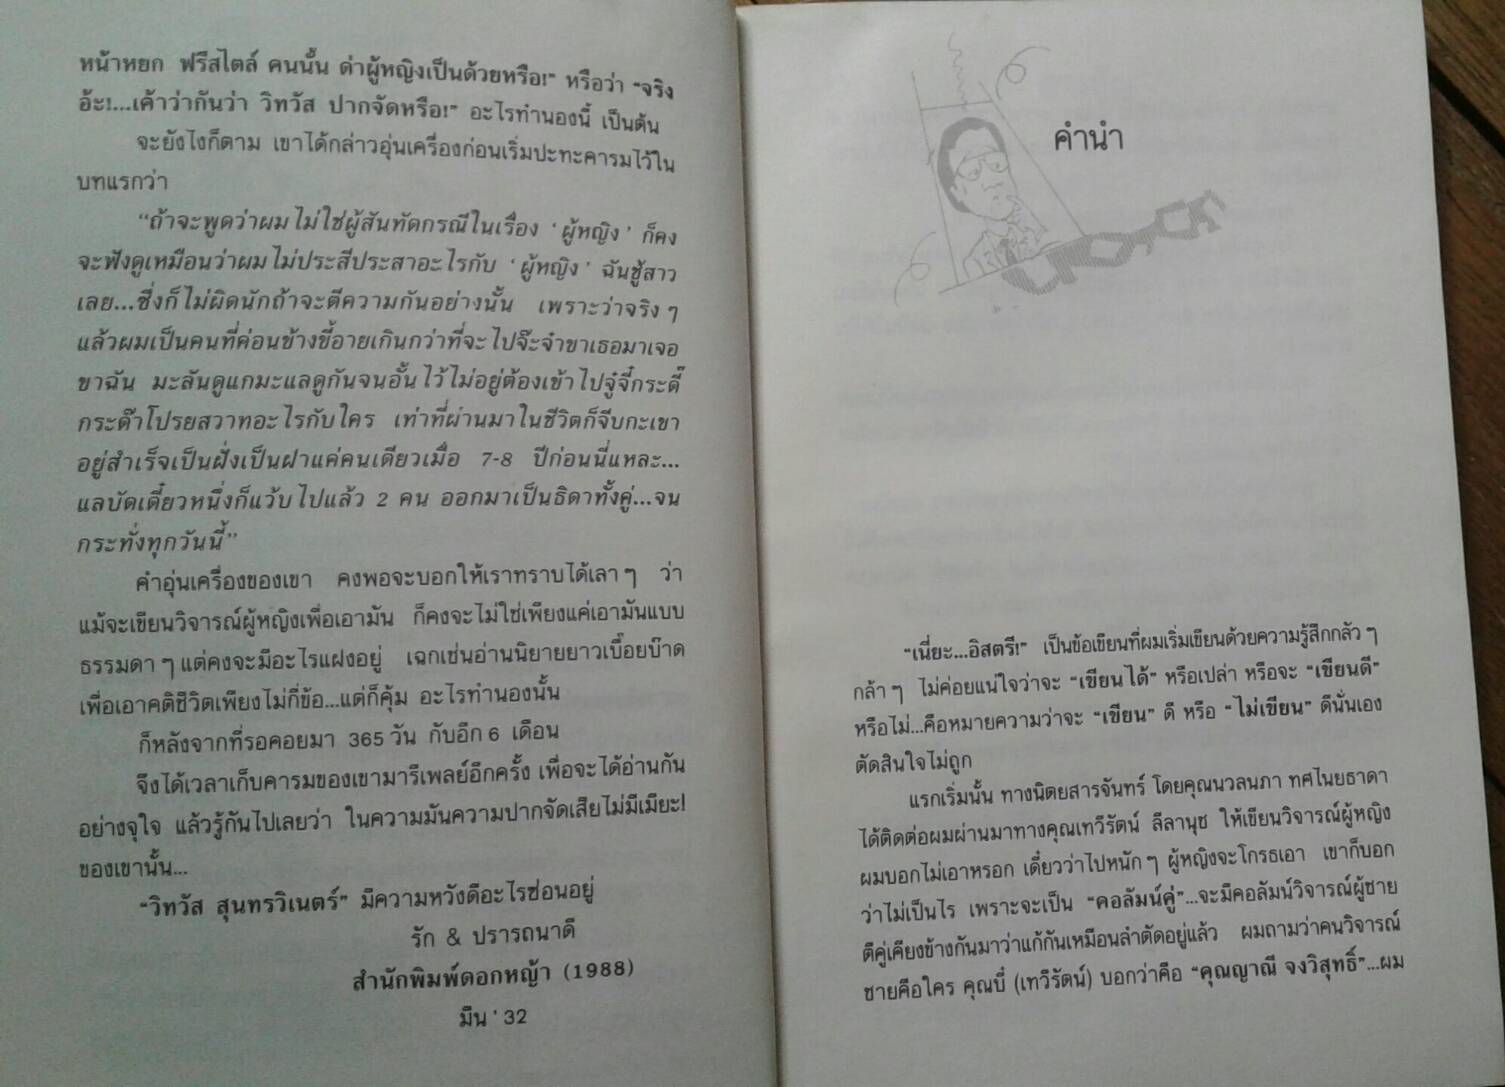 หน้าหยก ฟรีสไตล์ คนนั้น ด่าผู้หญิงเป็นด้วยหรือ!" หรือว่า "จริง
อ้ะ!...เค้าว่ากันว่า วิทวัส ปากจัดหรือ!" อะไรทำนองนี้ เป็นต้น
จะยังไงก็ตาม เขาได้กล่าวอุ่นเครื่องก่อนเริ่มปะทะคารมไว้ใน
บทแรกว่า
"ถ้าจะพูดว่าผมไม่ใช่ผู้สันทัดกรณีในเรื่อง 'ผู้หญิง' ก็คง
จะฟังดูเหมือนว่าผมไม่ประสีประสาอะไรกับ 'ผู้หญิง' ฉันชู้สาว
เลย...ซึ่งก็ไม่ผิดนักถ้าจะตีความกันอย่างนั้น เพราะว่าจริงๆ
แล้วผมเป็นคนที่ค่อนข้างขี้อายเกินกว่าที่จะไปจ๊ะจ๋าขาเธอมาเจอ
ขาฉัน มะลันดูแกมะแลดูกันจนอั้นไว้ไม่อยู่ต้องเข้าไปจู๋จี๋กระดี๊
กระด๊าโปรยสวาทอะไรกับใคร เท่าที่ผ่านมาในชีวิตก็จีบกะเขา
อยู่สำเร็จเป็นฝั่งเป็นฝาแค่คนเดียวเมื่อ 7-8 ปีก่อนนี่แหละ...
แลบัดเดี๋ยวหนึ่งก็แว้บไปแล้ว 2 คน ออกมาเป็นธิดาทั้งคู่...จน
กระทั่งทุกวันนี้"
คำอุ่นเครื่องของเขา คงพอจะบอกให้เราทราบได้เลาๆ ว่า
แม้จะเขียนวิจารณ์ผู้หญิงเพื่อเอามัน ก็คงจะไม่ใช่เพียงแค่เอามันแบบ
ธรรมดาๆ แต่คงจะมีอะไรแฝงอยู่ เฉกเช่นอ่านนิยายยาวเบื๊อยบ๊าด
เพื่อเอาคติชีวิตเพียงไม่กี่ข้อ...แต่ก็คุ้ม อะไรทำนองนั้น
ก็หลังจากที่รอคอยมา 365 วัน กับอีก 6 เดือน
จึงได้เวลาเก็บคารมของเขามารีเพลย์อีกครั้ง เพื่อจะได้อ่านกัน
อย่างจุใจ แล้วรู้กันไปเลยว่า ในความมันความปากจัดเสียไม่มีเมียะ!
ของเขานั้น...
"วิทวัส สุนทรวิเนตร์" มีความหวังดีอะไรซ่อนอยู่
รัก & ปรารถนาดี
สำนักพิมพ์ดอกหญ้า (1988)
มีน '32
คำนำ
"เนี่ยะ...อิสตรี!" เป็นข้อเขียนที่ผมเริ่มเขียนด้วยความรู้สึกกลัวๆ
กล้าๆ ไม่ค่อยแน่ใจว่าจะ "เขียนได้" หรือเปล่า หรือจะ "เขียนดี"
หรือไม่...คือหมายความว่าจะ "เขียน" ดี หรือ "ไม่เขียน" ดีนั่นเอง
ตัดสินใจไม่ถูก
แรกเริ่มนั้น ทางนิตยสารจันทร์ โดยคุณนวลนภา ทศไนยธาดา
ได้ติดต่อผมผ่านมาทางคุณเทวีรัตน์ ลีลานุช ให้เขียนวิจารณ์ผู้หญิง
ผมบอกไม่เอาหรอก เดี๋ยวว่าไปหนักๆ ผู้หญิงจะโกรธเอา เขาก็บอก
ว่าไม่เป็นไร เพราะจะเป็น "คอลัมน์คู่"...จะมีคอลัมน์วิจารณ์ผู้ชาย
ตีคู่เคียงข้างกันมาว่าแก้กันเหมือนลำตัดอยู่แล้ว ผมถามว่าคนวิจารณ์
ชายคือใคร คุณบี๋ (เทวีรัตน์) บอกว่าคือ "คุณญาณี จงวิสุทธิ์"...ผม